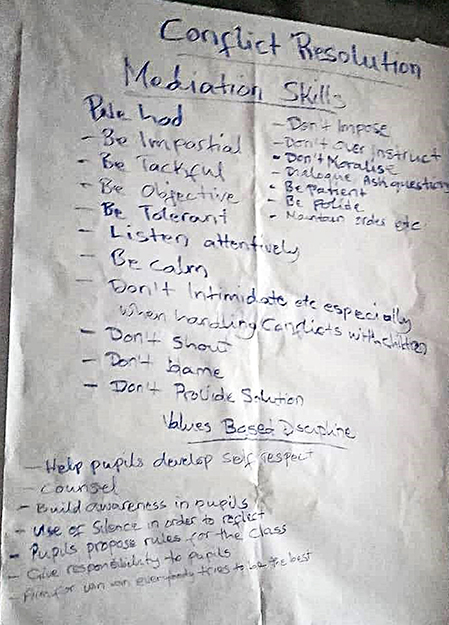 Conflict Resolution
Mediation Skills
- Be Impartial
- Be Tackful
- Be Objective
- Be Tolerant
- Listen attentively
- Be calm
- Don't Intimidate etc especially
when handling Conflicts with children
- Don't Shout
- Don't blame
- Don't Provide Solution
- Don't Impose
- Don't Over Instruct
- Don't Moralise
- Dialogue, Ask questions
- Be Patient
- Be Polide
- Maintain order etc
Values Based Discipline
- Help pupils develop self respect
- Counsel
- Build awareness in pupils
- Use of Silence in order to reflect
- Pupils propose rules for the Class
- Give responsibility to pupils
- Aim for win win everybody tries to be the best